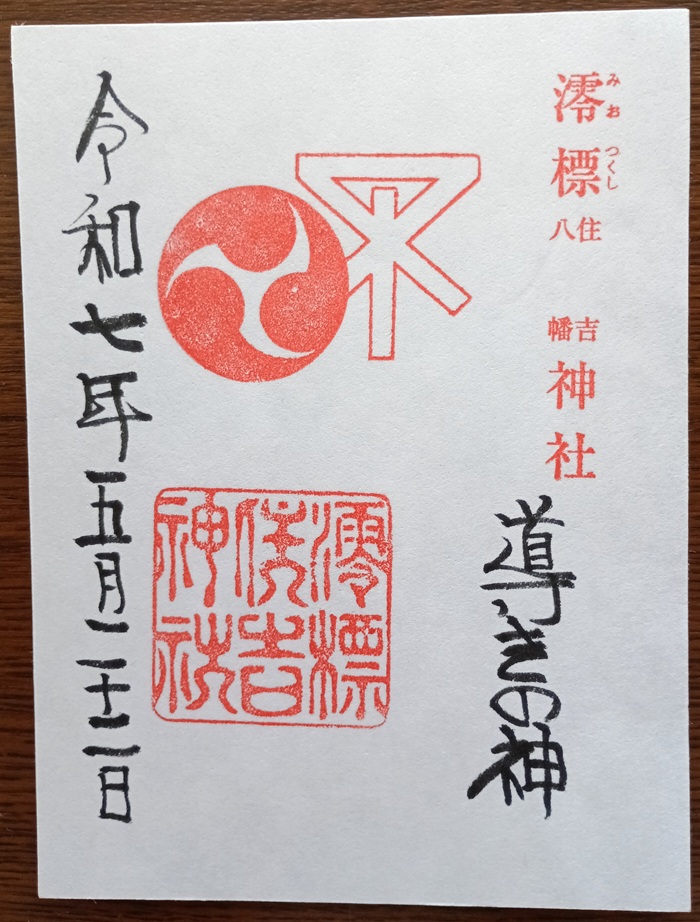 澪標住吉八幡神社
みおつくし
導きの神
澪標
住吉
神社
令和七年五月二十二日